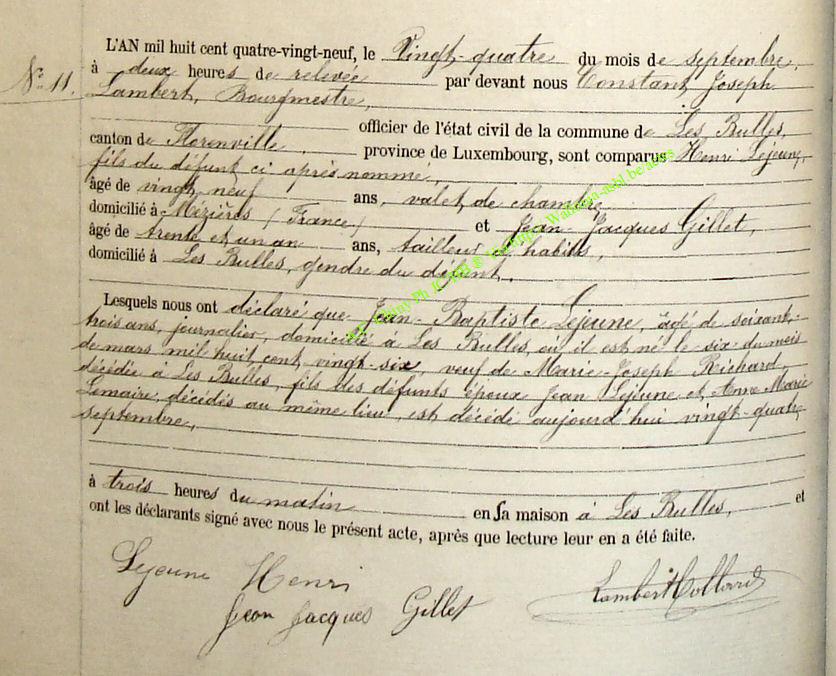 L'AN mil huit cent quatre-vingt-neuf, le Vingt-quatre du mois de septembre,
N° 11. à deux heures de relevée par devant nous Constant Joseph
Lambert, Bourgmestre,
officier de l'état civil de la commune de Les Bulles,
canton de Florenville, province de Luxembourg, sont comparus Henri Lejeune,
fils du défunt ci après nommé,
âgé de vingt neuf ans, valet de chambre,
domicilié à Mézières (France) et Jean-Jacques Gillet,
âgé de trente et un an ans, tailleur d'habits,
domicilié à Les Bulles, gendre du défunt,
Lesquels nous ont déclaré que Jean-Baptiste Lejeune, âgé de soixante-
trois ans, journalier, domicilié à Les Bulles, où il est né le six du mois
de mars mil huit cent vingt-six, veuf de Marie-Joseph Richard,
décédée à Les Bulles, fils des défunts époux Jean Lejeune et Anne Marie
Lemaire, décédés au même lieu, est décédé aujourd'hui vingt-quatre
septembre,
à trois heures du matin en sa maison à Les Bulles, et
ont les déclarants signé avec nous le présent acte, après que lecture leur en a été faite.
Lejeune Henri
Jean Jacques Gillet
Lambert